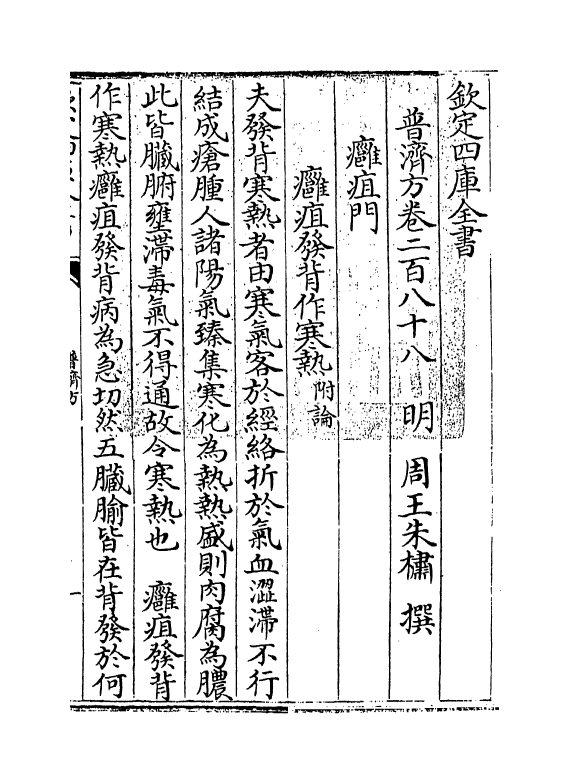 欽定四庫全書
普濟方卷二百八十八　明　周王朱橚　撰
癰疽門
癰疽發背作寒熱附論
夫發背寒熱者由寒氣客於經絡折於氣血澀滯不行
結成瘡腫人諸陽氣臻集寒化為熱熱盛則肉腐為膿
此皆臟腑壅滯毒氣不得通故令寒熱也　癰疽發背
作寒熱癰疽發背病為急切然五臟腧皆在背發於何
普濟方
一